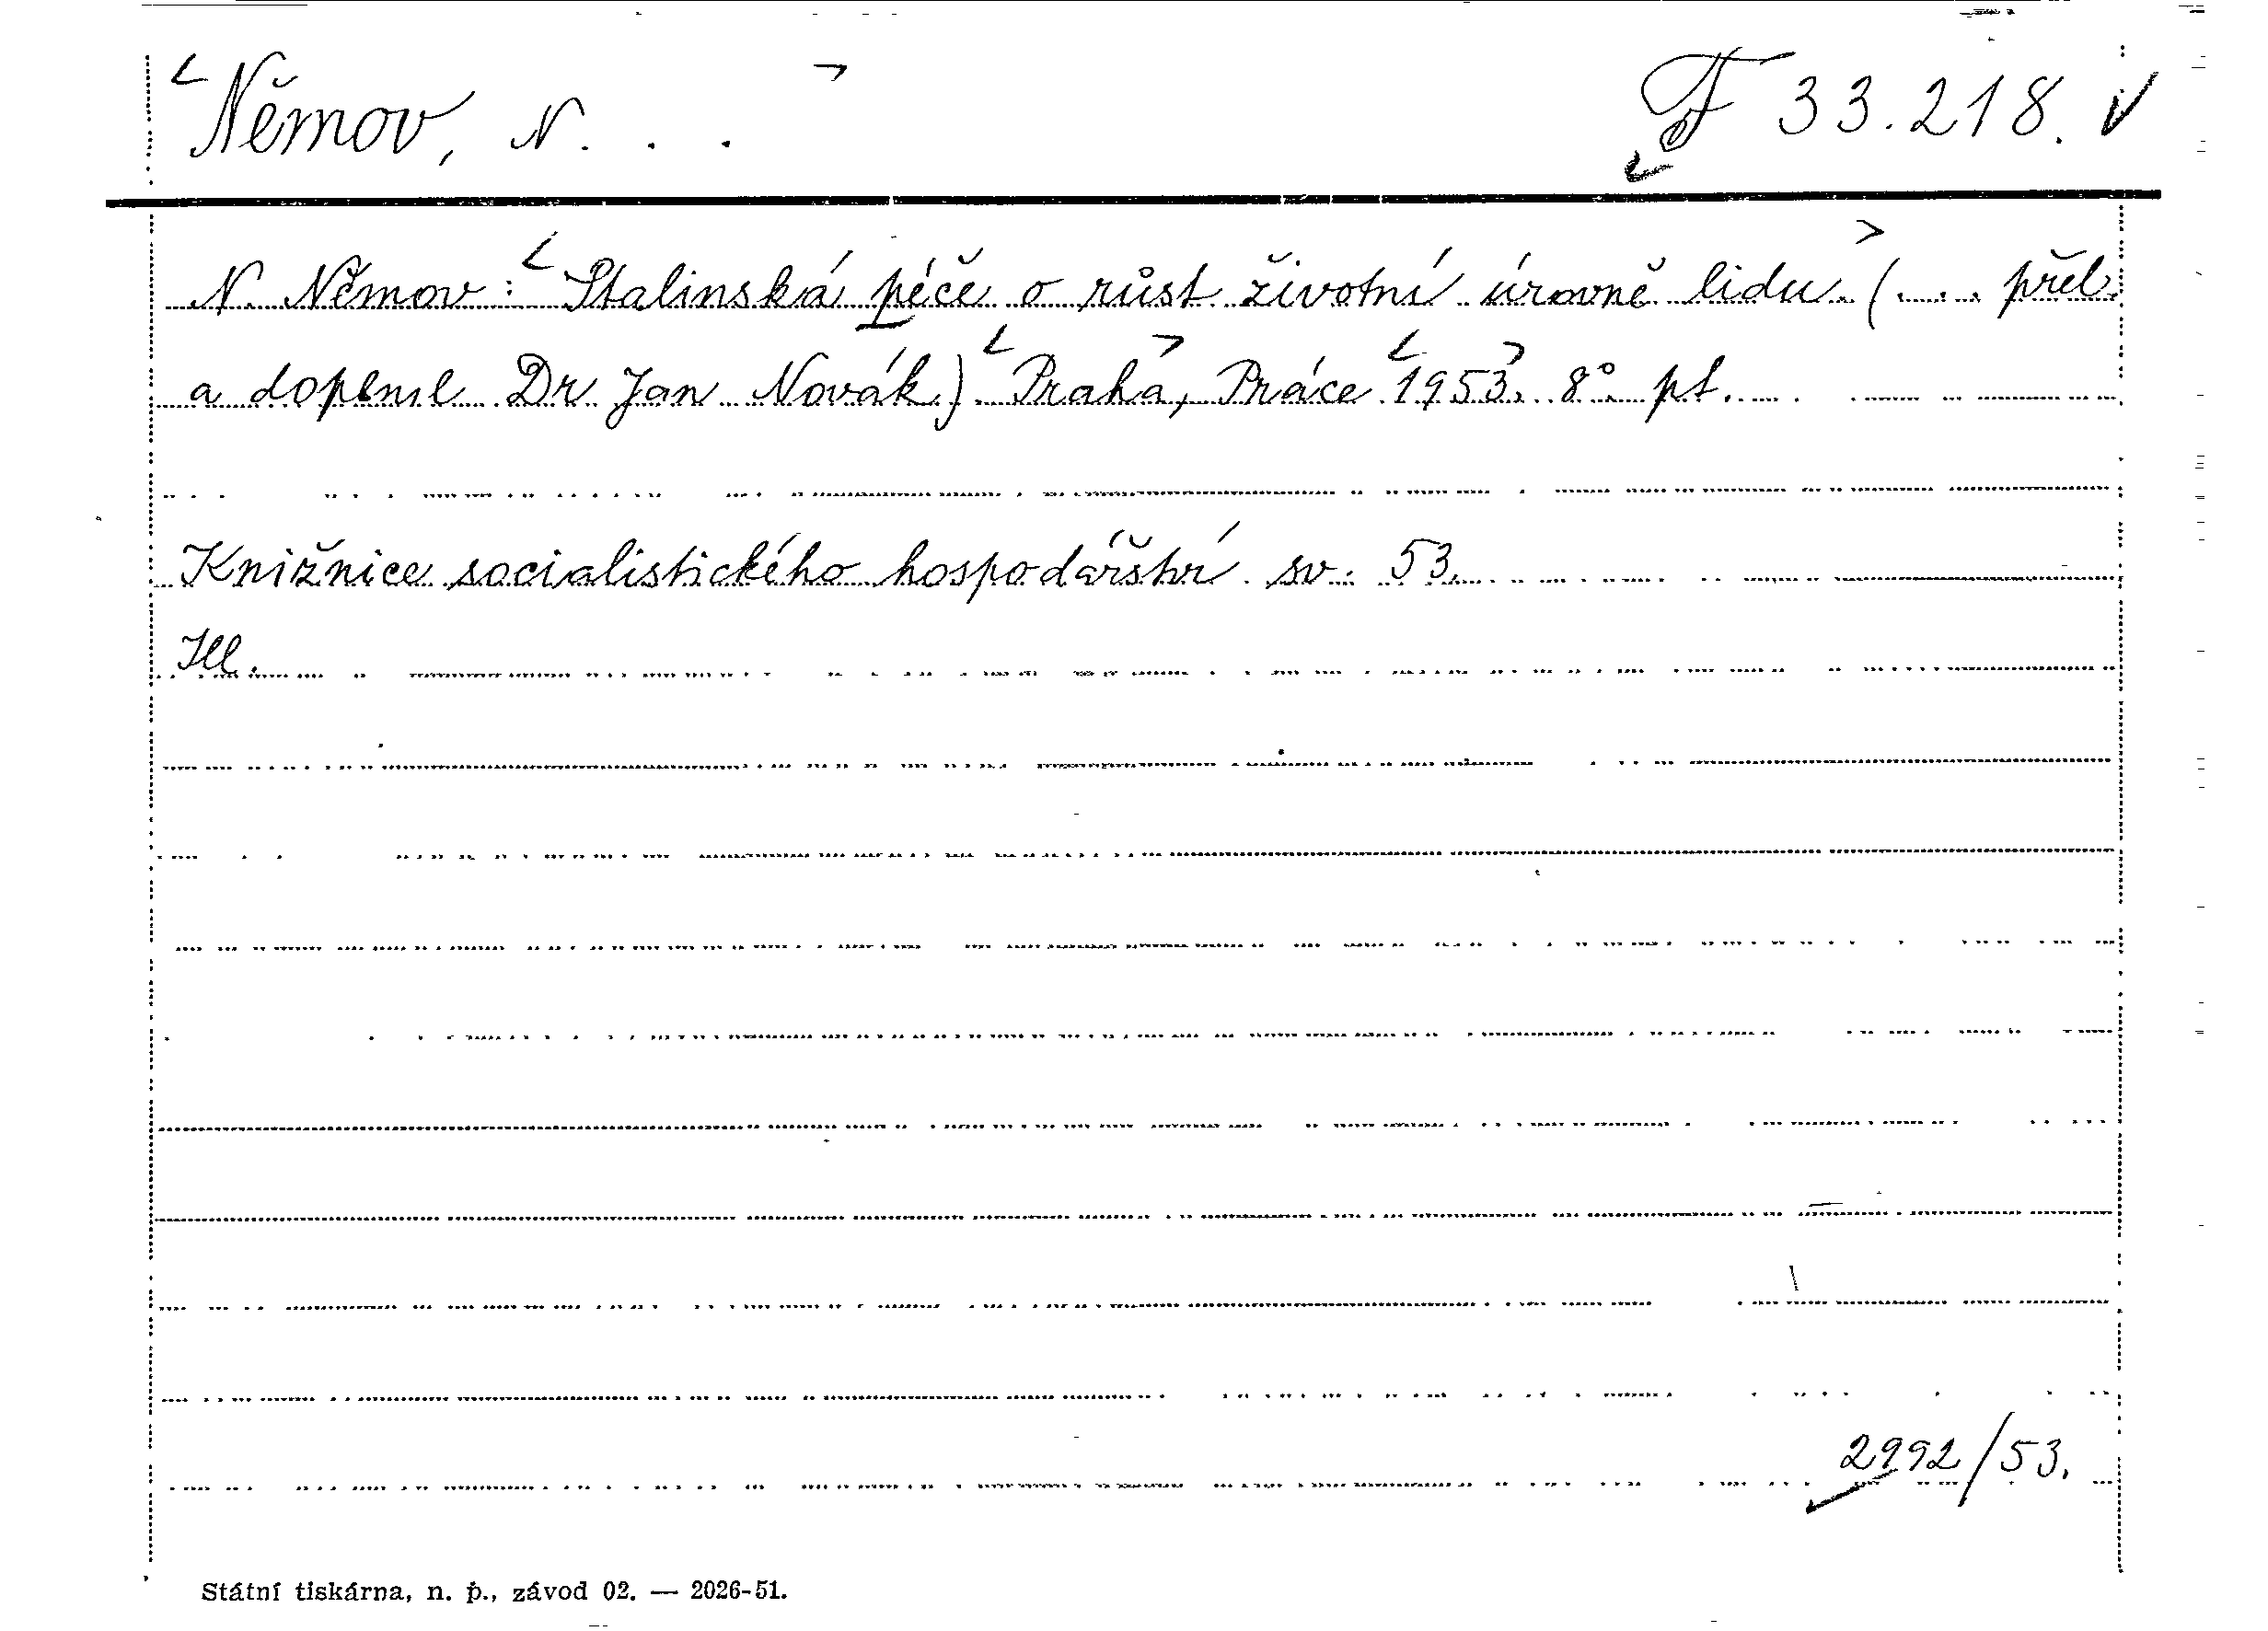 Němov, N. . .
F 33.218.
N. Němov: Stalinská péče o růst životní úrovně lidu. (... přel.
a doplnil Dr Jan Novák.) Praha, Práce 1953. 8°. pt.
Knižnice socialistického hospodářství sv. 53.
Ill.
2992/53.
Státní tiskárna, n. p., závod 02. — 2026-51.